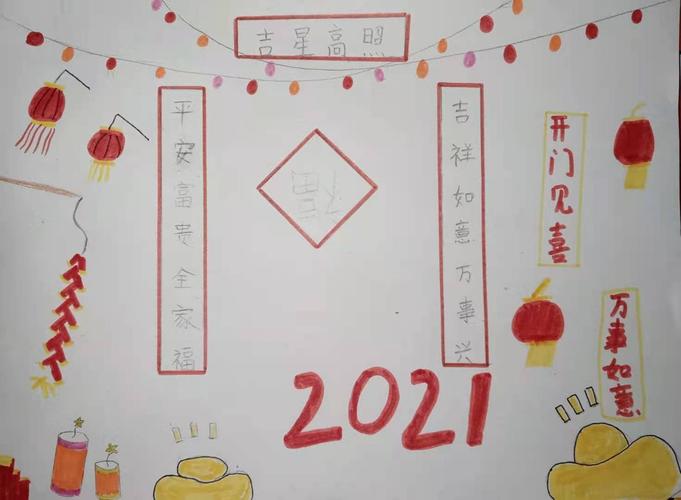 吉星高照
吉祥如意万事兴
平安富贵全家福
福
开门见喜
万事如意
2021